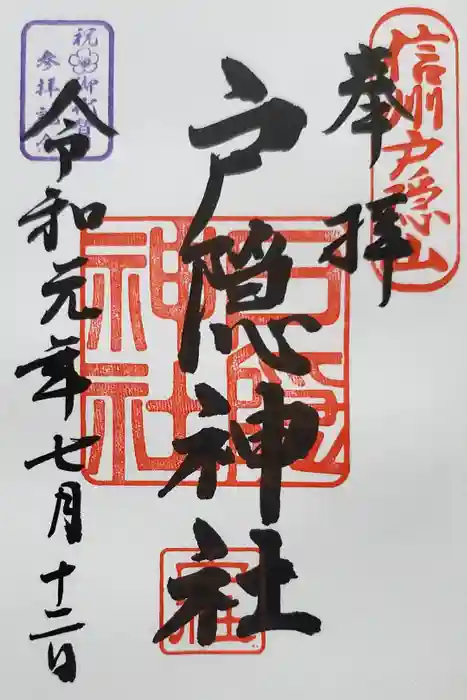 信州戸隠山
奉拝
戸隠神社
戸隠
神社
令和元年七月十二日
祝御代替
参拝記念